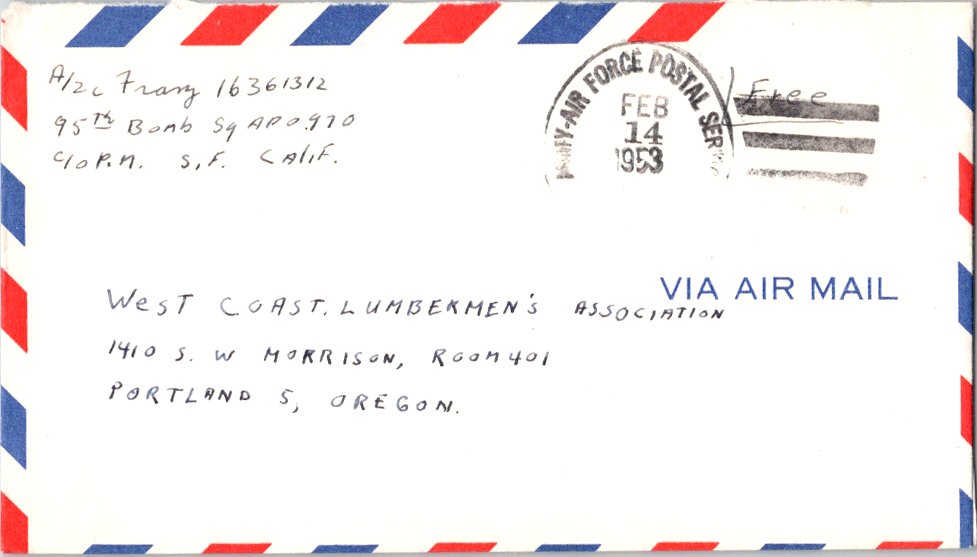 A/2c Franz 16361312
95th Bomb Sq APO.970
c/o P.M. S.F. Calif.
ARMY-AIR FORCE POSTAL SERVICE
FEB
14
1953
Free
VIA AIR MAIL
WEST COAST. LUMBERMEN'S ASSOCIATION
1410 S. W MORRISON, ROOM 401
PORTLAND 5, OREGON.